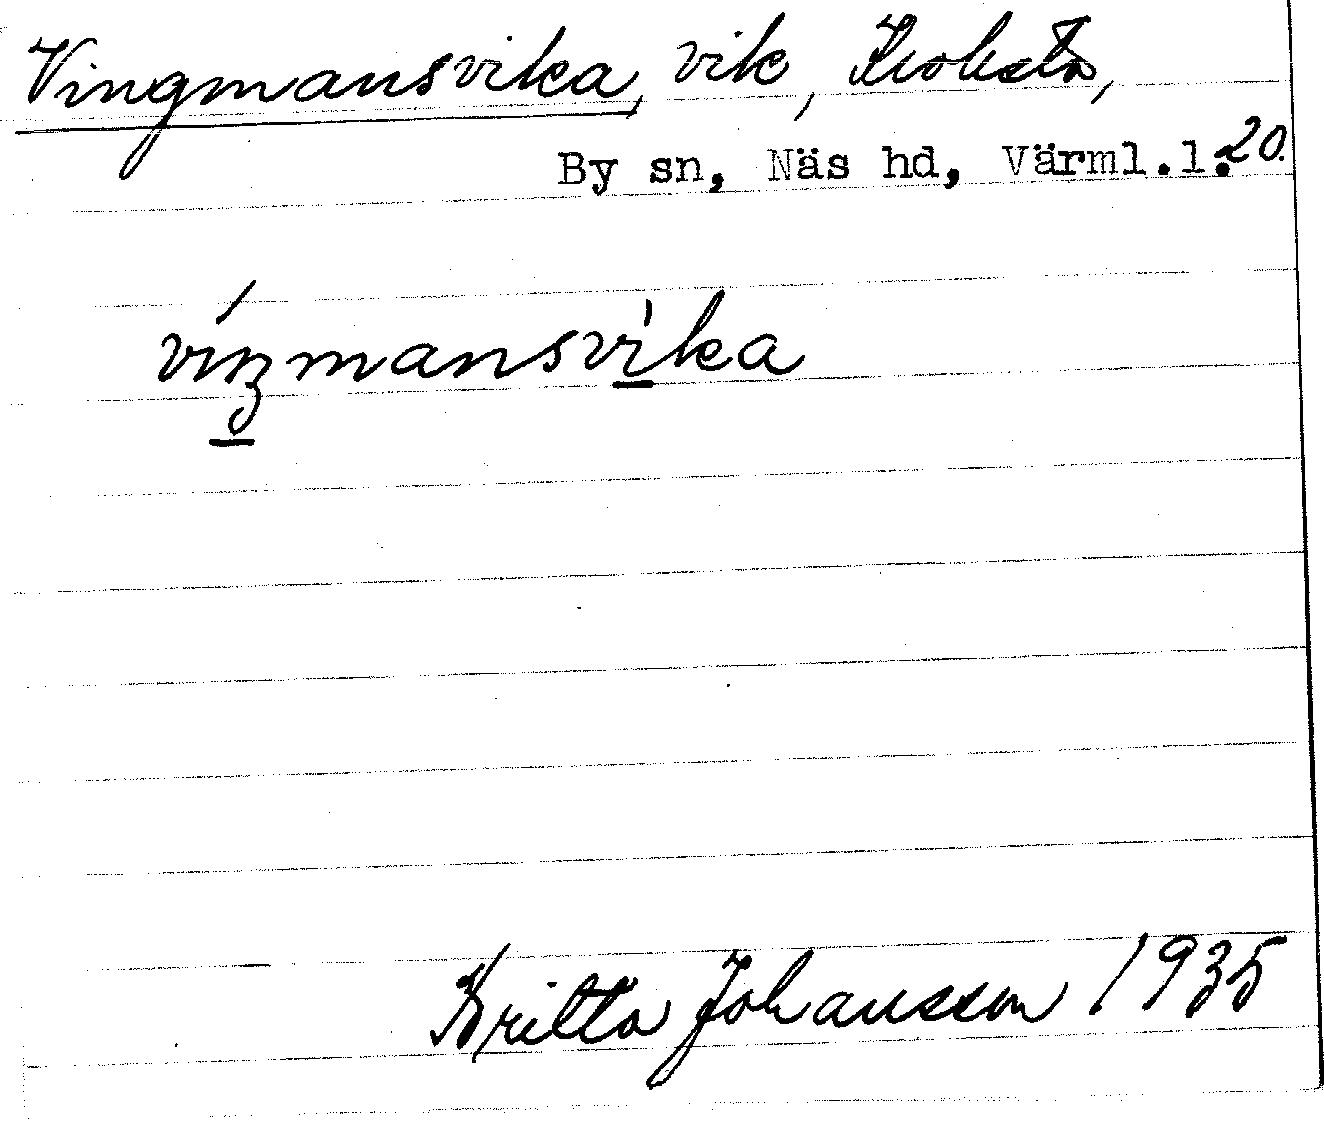 Vingmansvika, vik, Kroksta,
By sn, Näs hd, Värml.l. 20.
víŋmansvi̠̍ka
Britta Johansson 1935